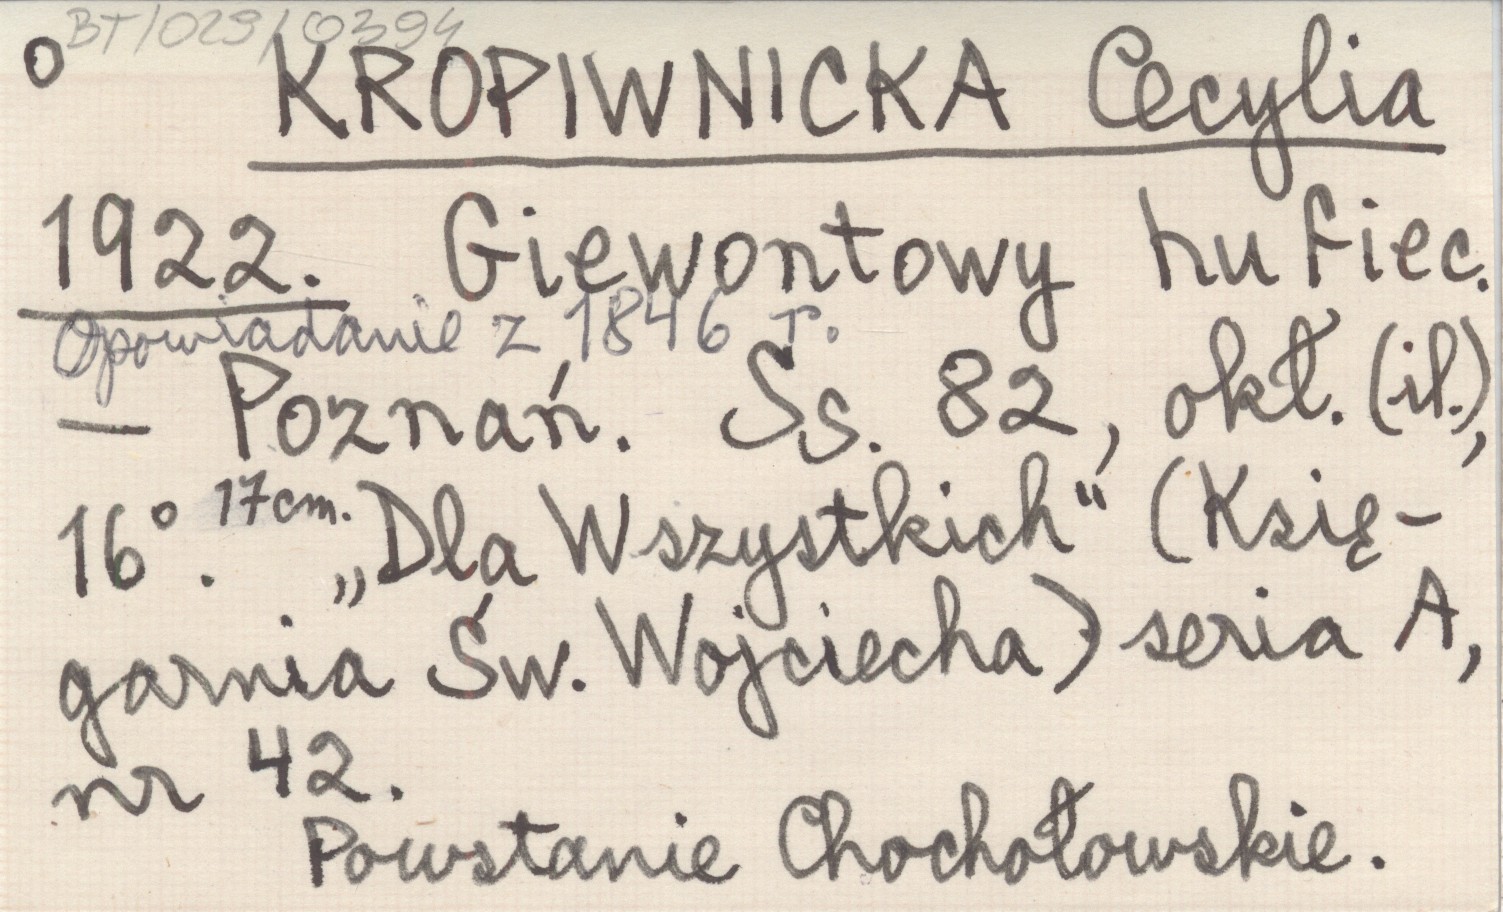 BT/029/0394
o KROPIWNICKA Cecylia
1922. Giewontowy hufiec.
Opowiadanie z 1846 r.
— Poznań. Ss. 82, okł. (il.),
16°. 17cm. „Dla Wszystkich" (Księ-
garnia Św. Wojciecha) seria A,
nr 42.
Powstanie Chochołowskie.